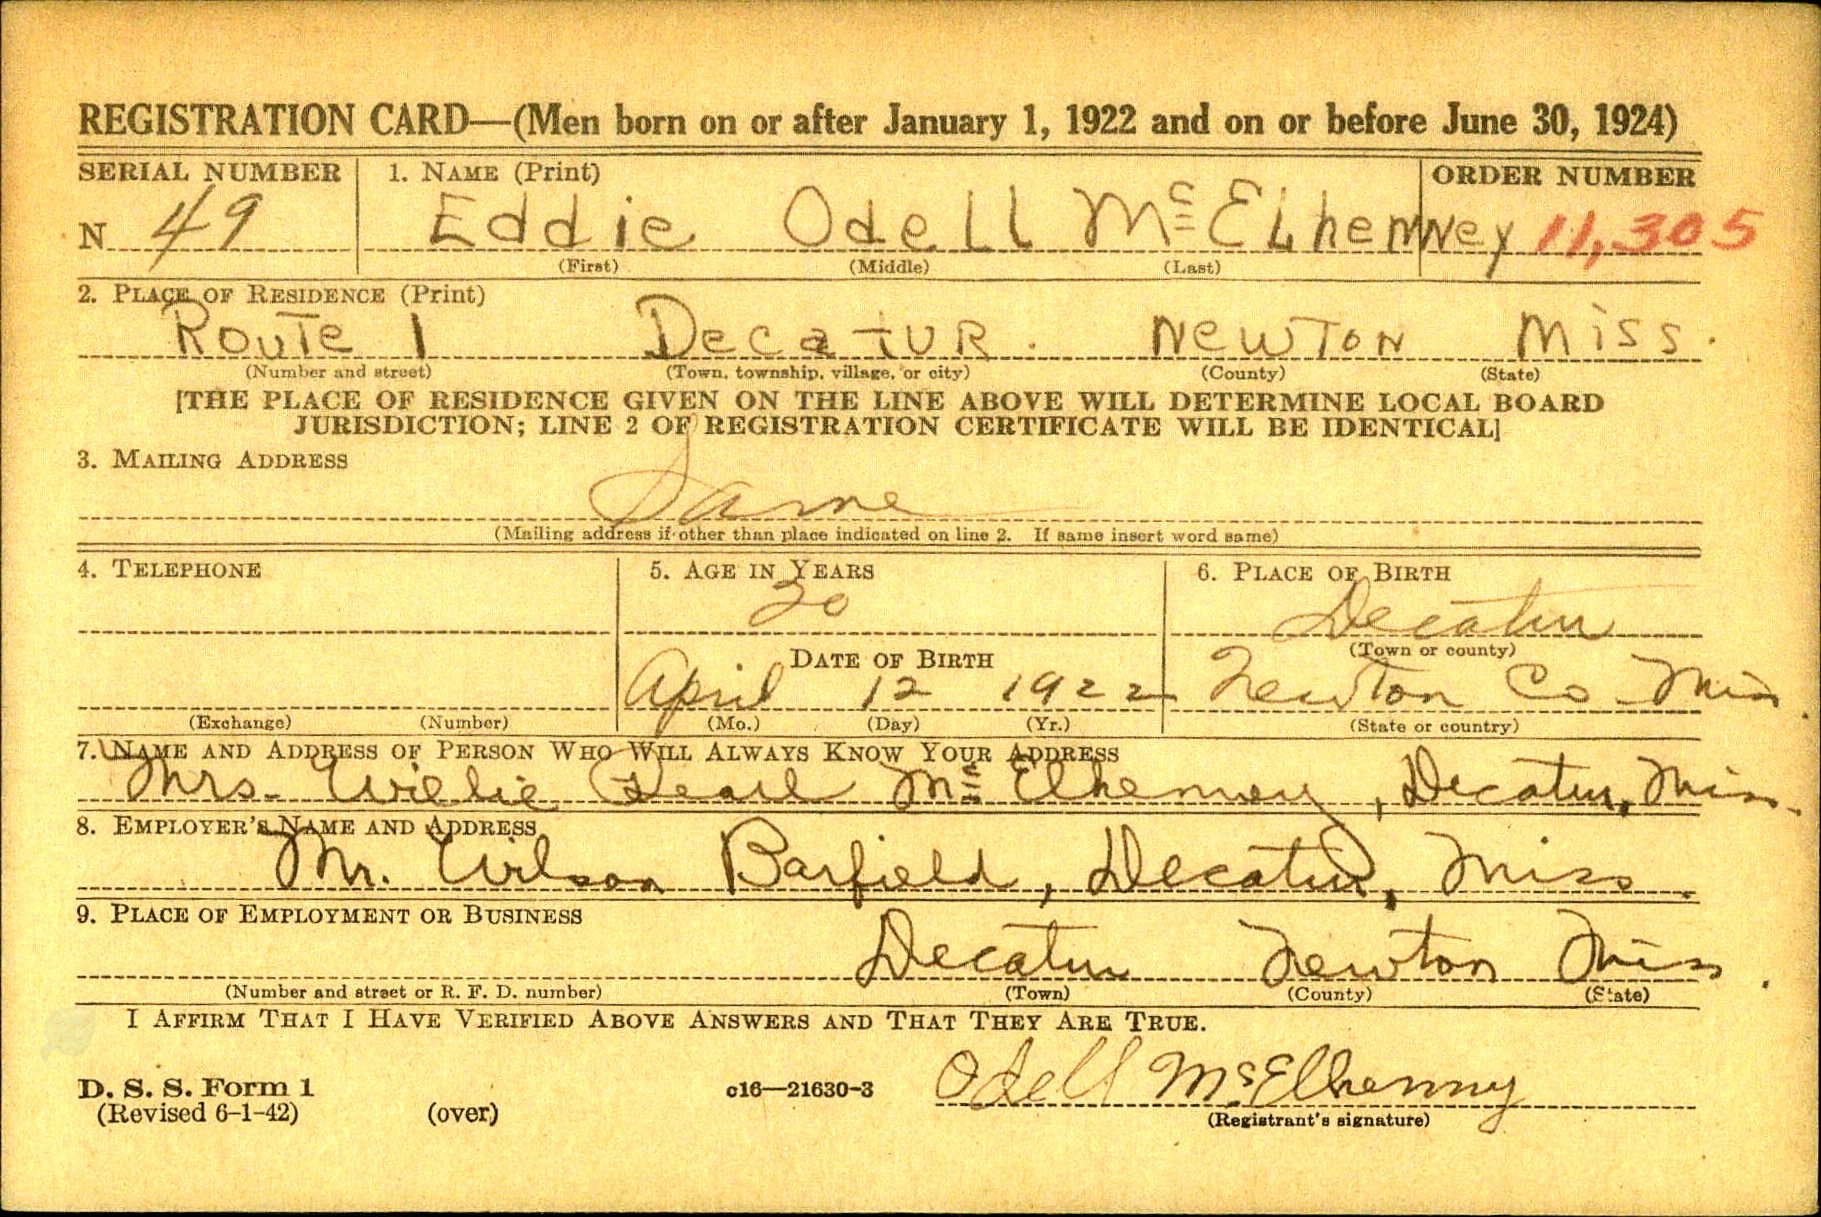 REGISTRATION CARD—(Men born on or after January 1, 1922 and on or before June 30, 1924)
SERIAL NUMBER 1. NAME (Print) ORDER NUMBER
N 49 Eddie Odell Mc ELhenNey 11,305
(First) (Middle) (Last)
2. PLACE OF RESIDENCE (Print)
Route 1 Decatur. Newton Miss.
(Number and street) (Town, township, village, or city) (County) (State)
[THE PLACE OF RESIDENCE GIVEN ON THE LINE ABOVE WILL DETERMINE LOCAL BOARD
JURISDICTION; LINE 2 OF REGISTRATION CERTIFICATE WILL BE IDENTICAL]
3. MAILING ADDRESS
Same
(Mailing address if other than place indicated on line 2. If same insert word same)
4. TELEPHONE 5. AGE IN YEARS 6. PLACE OF BIRTH
20 Decatur
DATE OF BIRTH (Town or county)
April 12 1922 Newton Co Miss.
(Exchange) (Number) (Mo.) (Day) (Yr.) (State or country)
7. NAME AND ADDRESS OF PERSON WHO WILL ALWAYS KNOW YOUR ADDRESS
Mrs. Willie Pearl Mc Elhenney, Decatur, Miss.
8. EMPLOYER'S NAME AND ADDRESS
Mr. Wilson Barfield, Decatur, Miss.
9. PLACE OF EMPLOYMENT OR BUSINESS
Decatur Newton Miss.
(Number and street or R. F. D. number) (Town) (County) (State)
I AFFIRM THAT I HAVE VERIFIED ABOVE ANSWERS AND THAT THEY ARE TRUE.
Odell McElhenny
D. S. S. Form 1 c16—21630-3
(Revised 6-1-42) (over) (Registrant's signature)